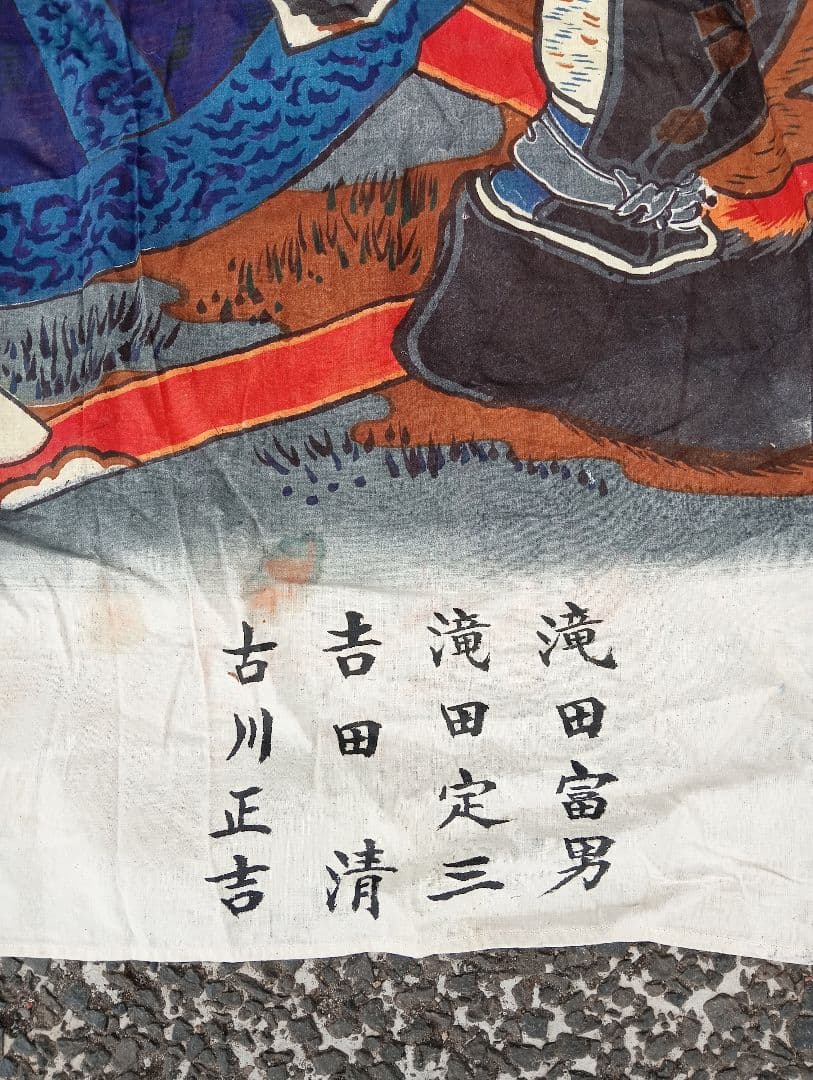 滝田富男
滝田定三
𠮷田清
古川正吉